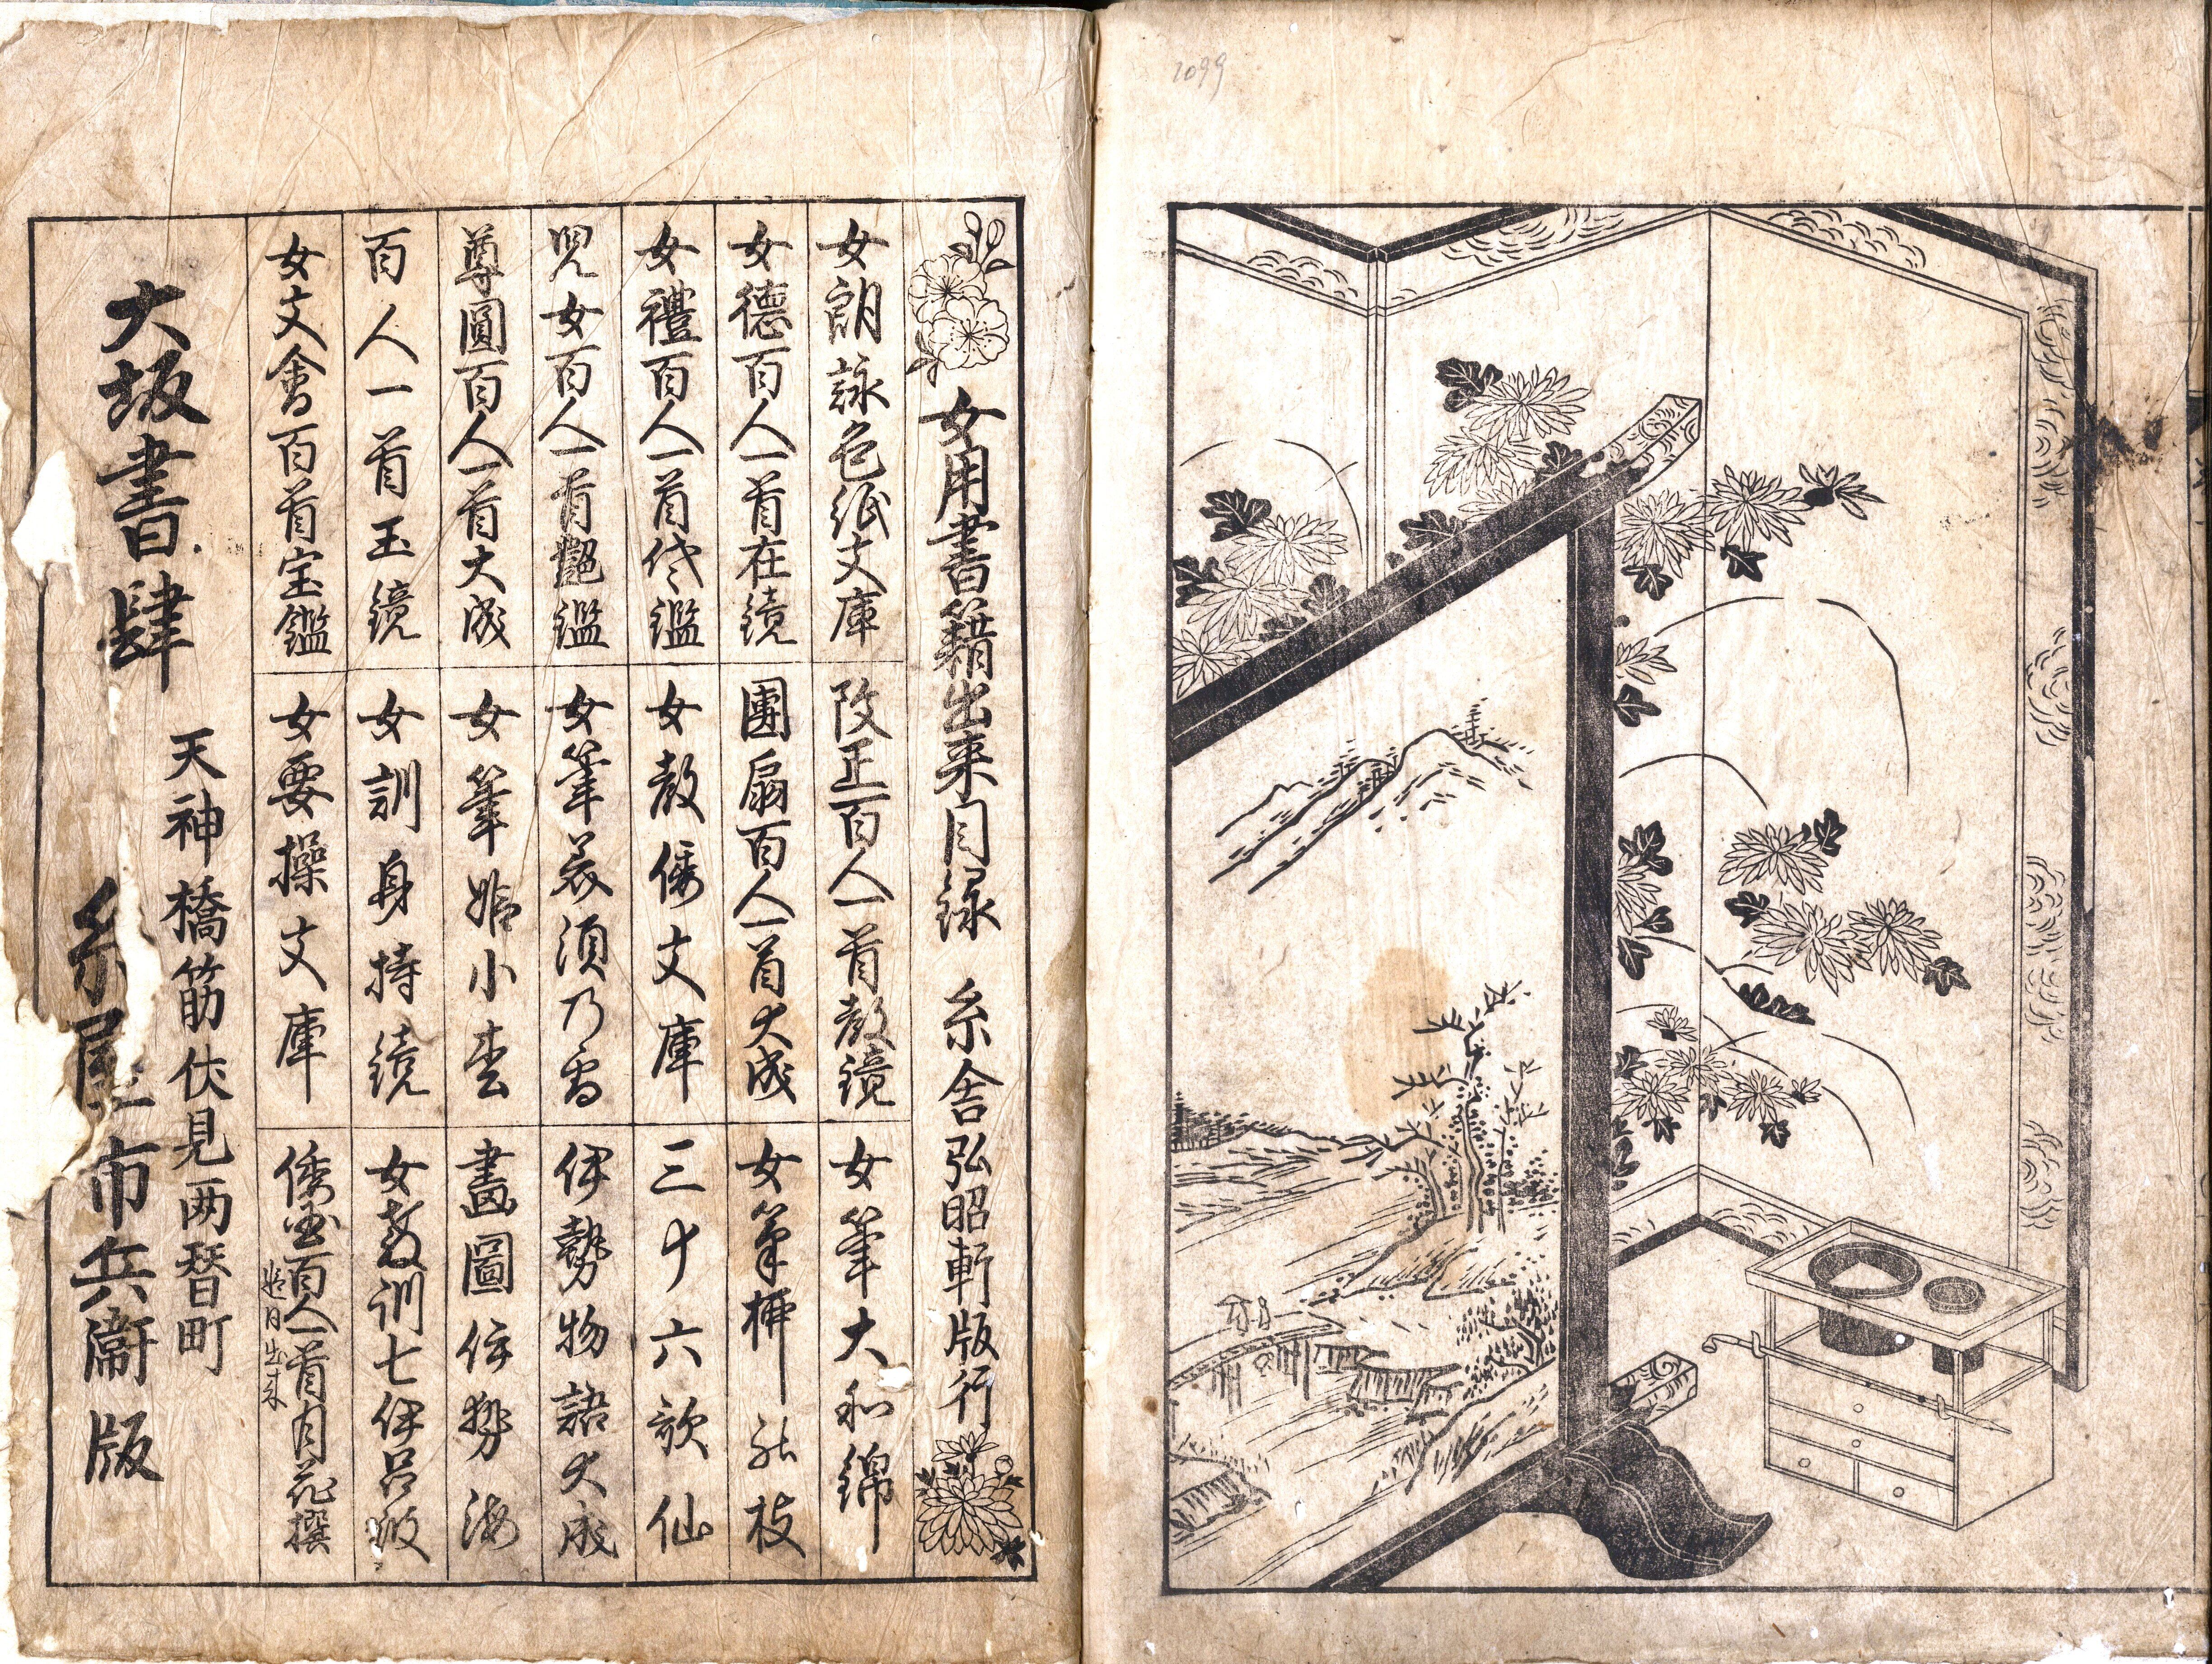 1099
女用書籍出来目録 糸舎弘昭軒版行
女朗詠色紙文庫
改正百人一首教鏡
女筆大和錦
女徳百人一首在鏡
團扇百人一首大成
女筆梛能枝
女禮百人一首代鑑
女教倭文庫
三十六歌仙
児女百人一首艶鑑
女筆花須乃
伊勢物語大成
尊圓百人一首大成
女筆姫小松
畫圖伊勢海
百人一首玉鏡
女訓身持鏡
女教訓七伊呂波
女文會百首宝鑑
女要操文庫
倭玉百人一首月花撰
近日出来
大坂書肆
天神橋筋伏見両替町
糸屋市兵衞版